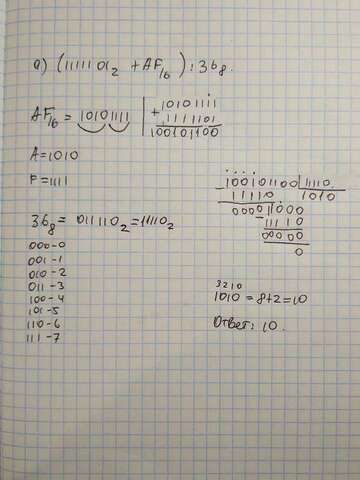 а) (1111101₂ + AF₁₆) : 36₈.
AF₁₆ = 10101111
+ 10101111
1111101
100101100
A=1010
F=1111
36₈ = 011110₂ = 11110₂
000-0
001-1
010-2
011-3
100-4
101-5
110-6
111-7
100101100 | 11110
- 11110 | 1010
000011000
- 11110
00000
0
3210
1010 = 8+2=10
Ответ: 10.